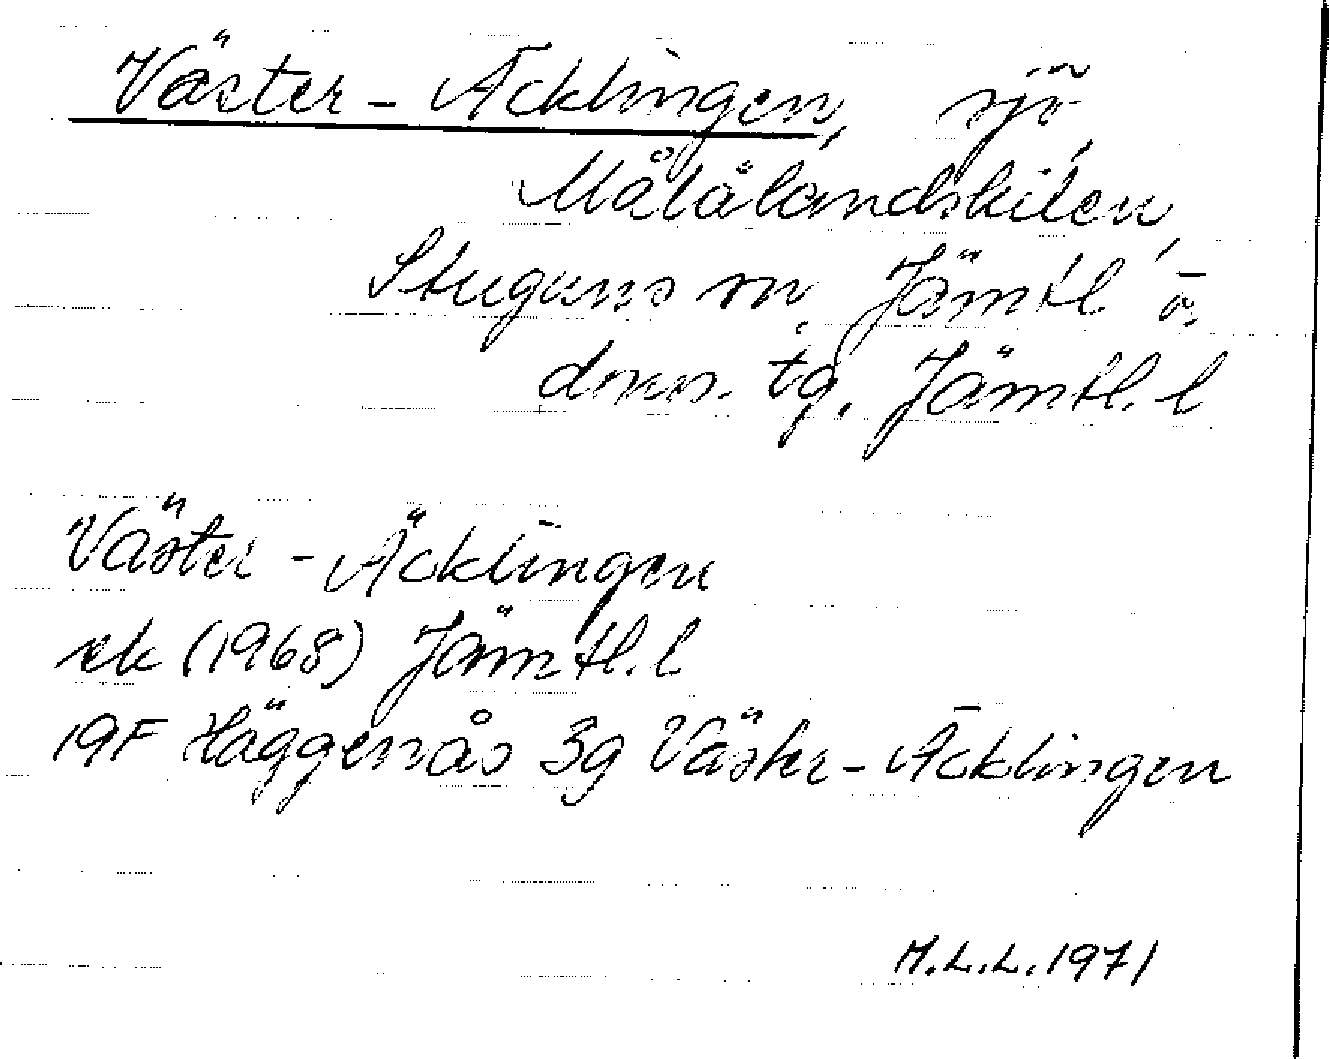 Väster-Äcklingen, sjö,
Målålandskilen,
Stuguns sn, Jämtl. ö.
doms. tg, Jämtl. l
Väster-Äcklingen
ek (1968) Jämtl. l
19F Häggenås 3g Väster-Äcklingen
M.L.L. 1971